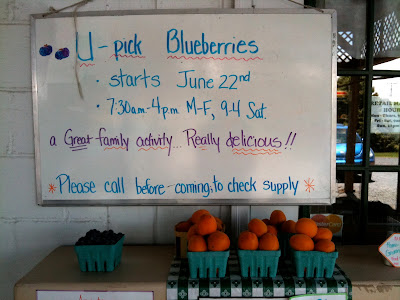 U-pick Blueberries
• starts June 22nd
• 7:30am-4pm M-F, 9-4 Sat.
a Great family activity... Really delicious!!
*Please call before coming, to check supply *
RETAIL MAR
HOURS